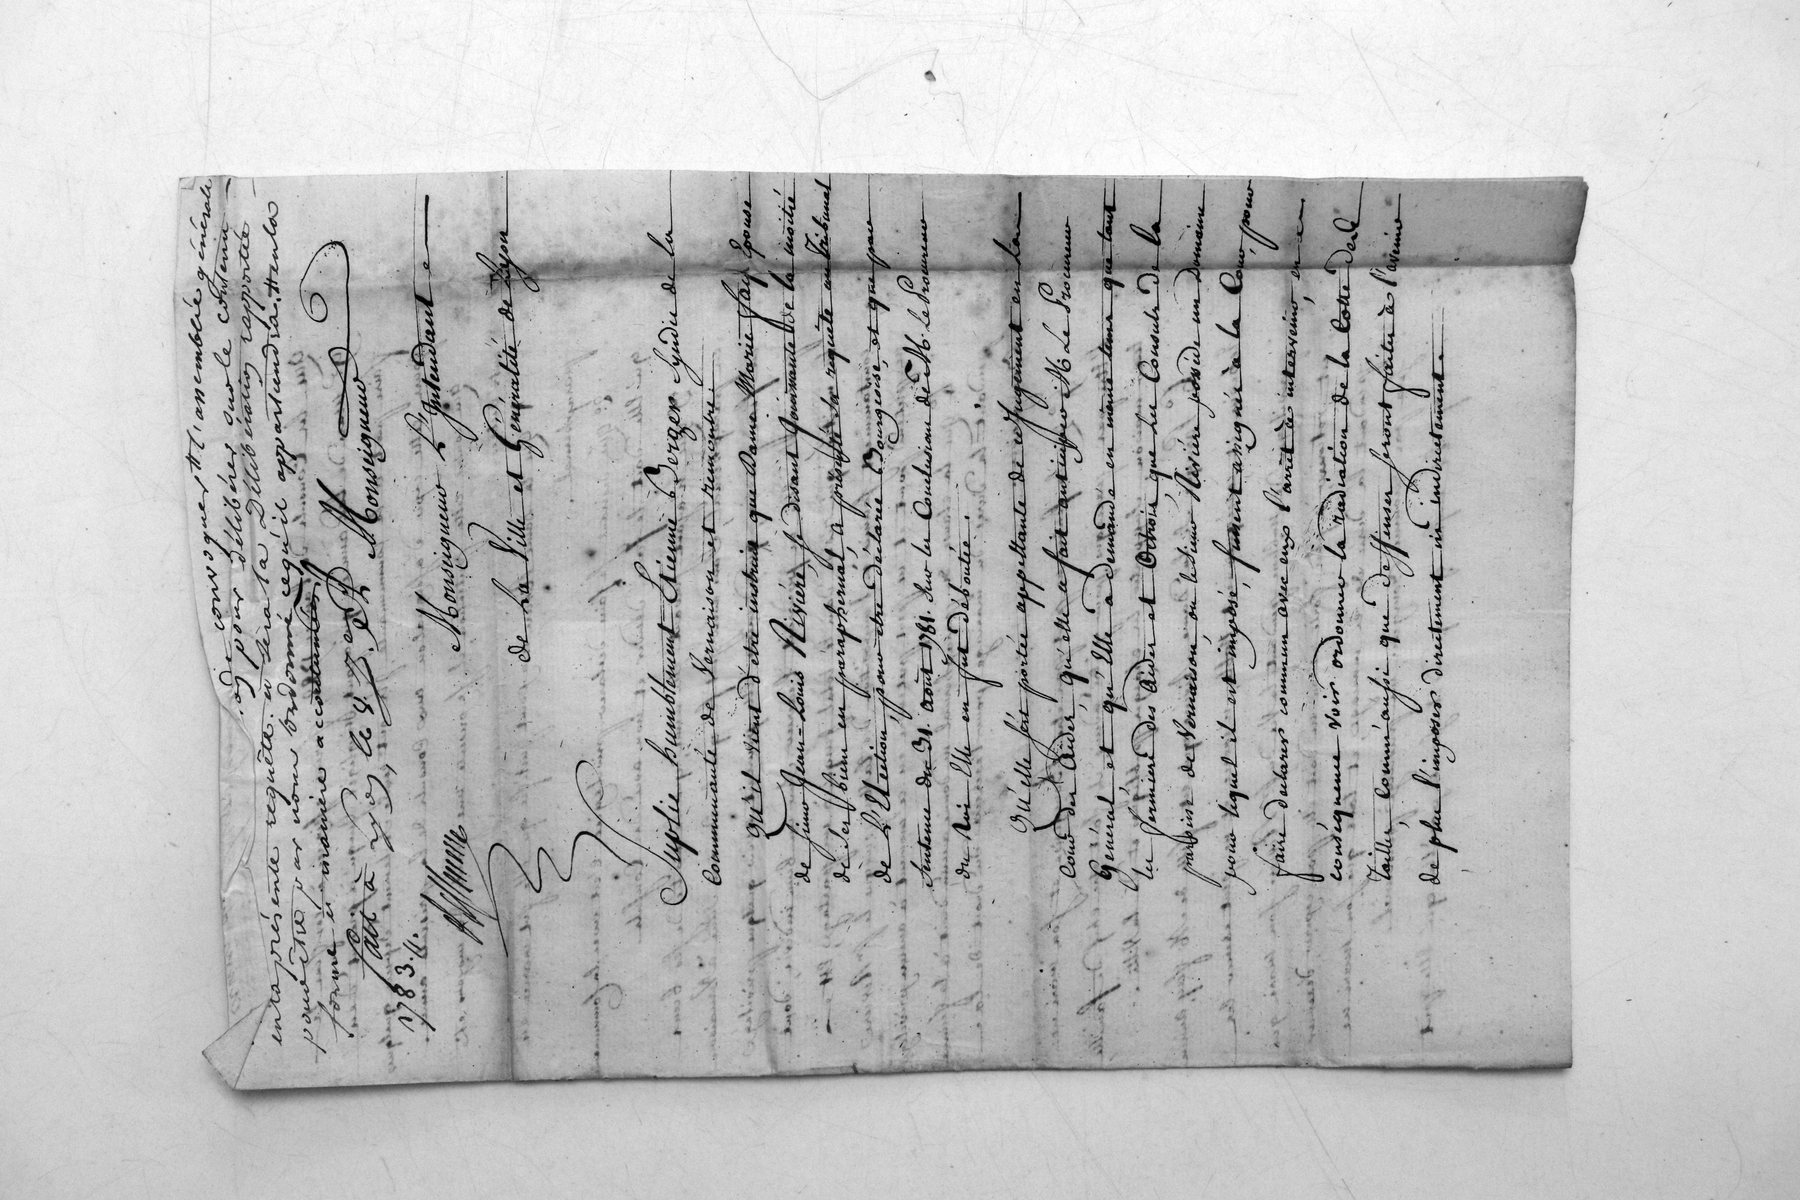 de convoquer l'assemblée générale
pour délibérer sur le contenu
en la présente requête. et sera la Délibération rapportée
pour être par nous ordonné ce qu'il appartiendra. Hemla
forme et manière accoutumées
fait à Lyon, le
1783.
A Monseigneur
Monseigneur L'Intendant
de La Ville et Généralité de Lyon
Suplie humblement Etienne Berger Syndic de la
Communauté de Vernaison et remontre.
Qu'il vient d'être instruit que Dame Marie Fay Epouse
de sieur Jean-Louis Rivière, se disant Jouissante de la moitié
de ses biens en paraphernal, a présenté sa requête au Tribunal
de L'Election, pour etre déclarée Bourgeoise, et que par
Sentence du 31. août 1781. Sur les Conclusions de M. le Procureur
du Roi Elle en fut déboutée.
Qu'elle s'est portée appellante de ce Jugement en la
Cour des Aides, qu'elle a fait anticiper M. Le Procureur
Général et qu'Elle a demandé en même tems que tant
les fermiers des Aides et Octrois, que les Consuls de la
paroisse de Vernaison où le sieur Rivière possède un Domaine
pour lequel il est imposé, fussent assignés à la Cour pour
faire declarer commun avec eux l'arrêt à intervenir, en
conséquence voir ordonner la radiation de la Cotte de
Taille comm'aussi que deffenses seront faites à l'avenir
de plus l'imposer directement ni indirectement.